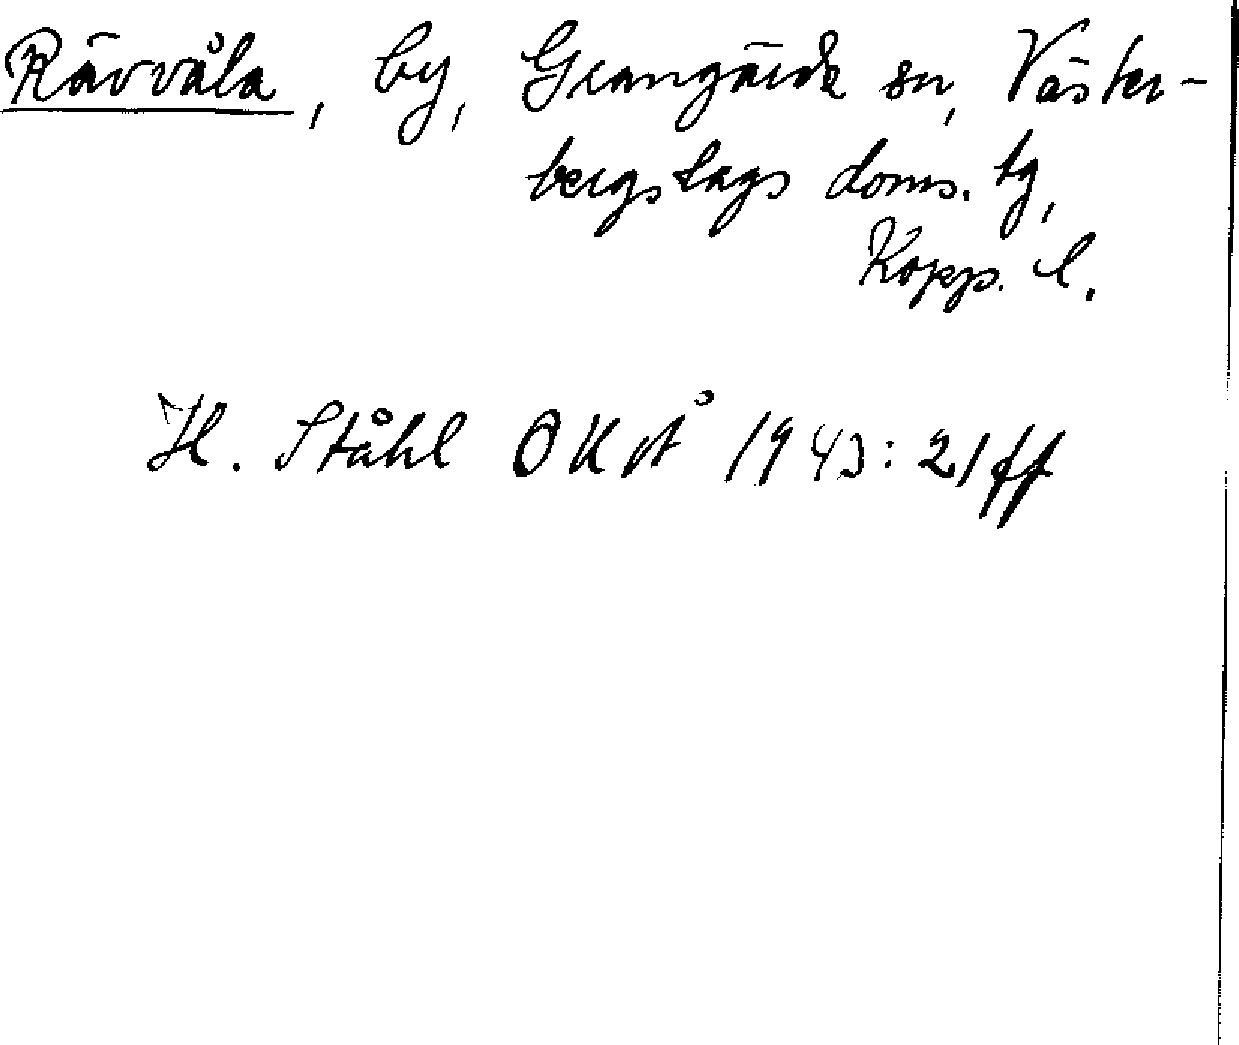 Rävvåla, by, Grangärde sn, Väster-
bergslags doms. tg,
Kopp. l.
H. Ståhl OKÅ 1943:21ff